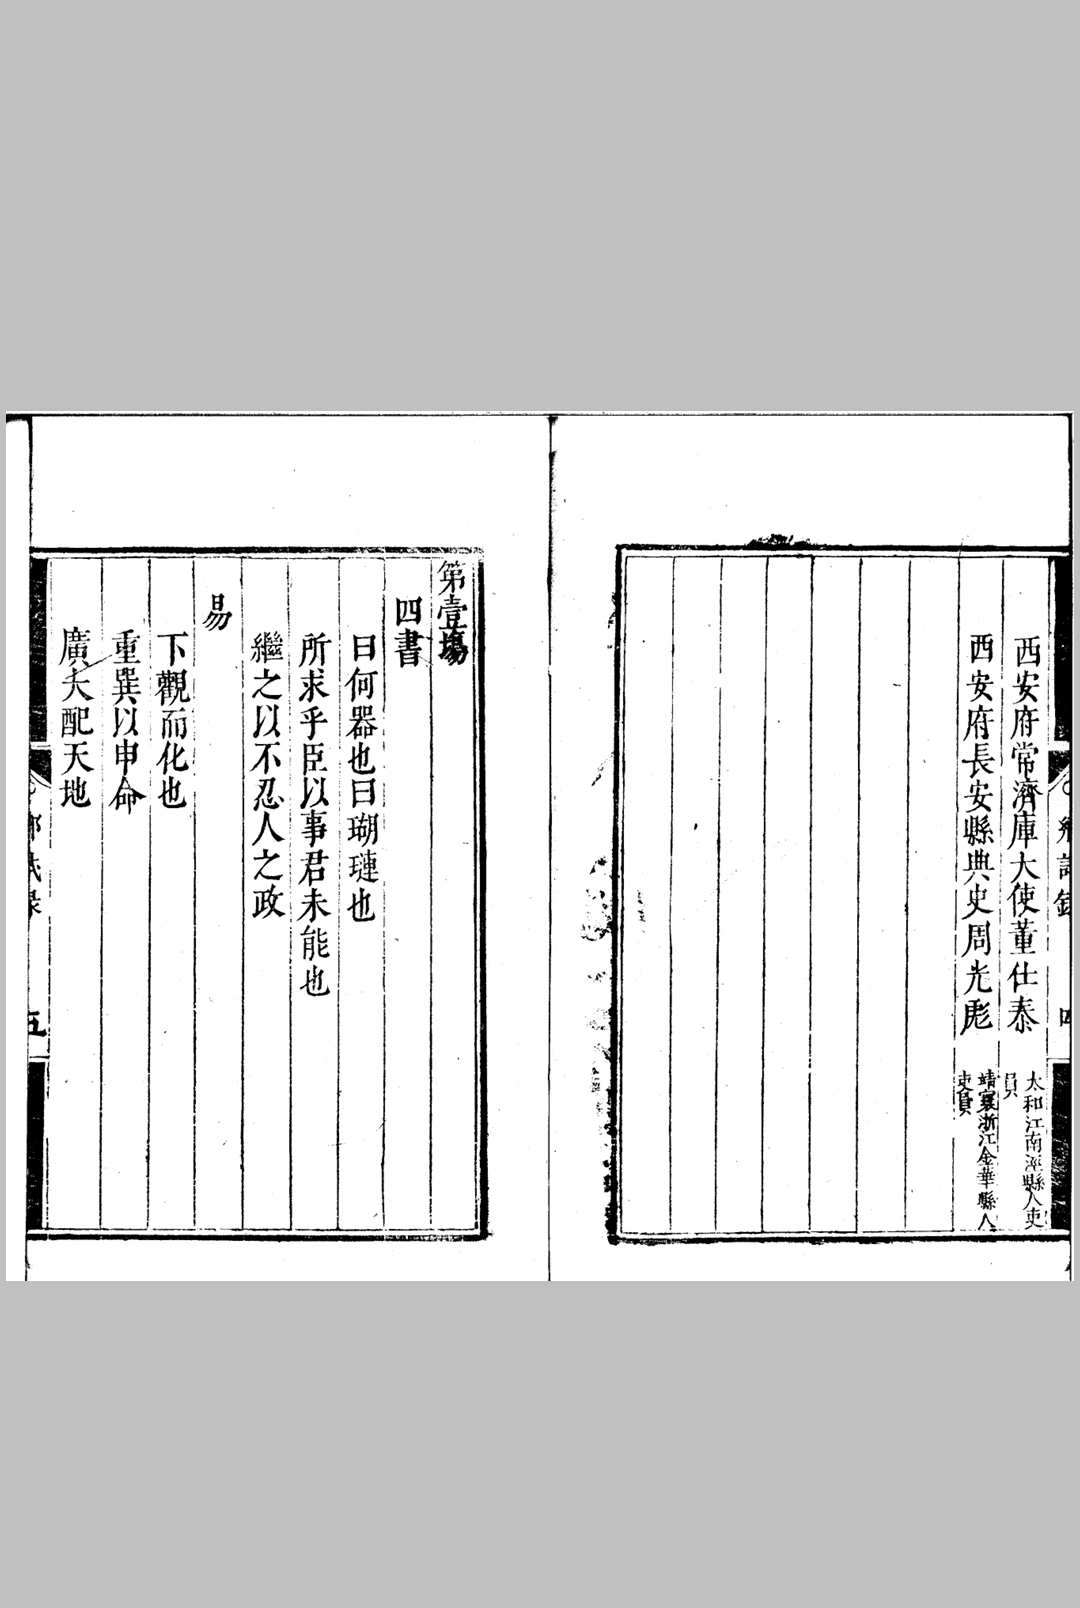 西安府常濟庫大使董仕泰
太和江南涇縣人吏
員
西安府長安縣典史周光彪
靖寰浙江金華縣人
吏員
鄉試錄
四
第壹場
四書
曰何器也曰瑚璉也
所求乎臣以事君未能也
繼之以不忍人之政
易
下觀而化也
重巽以申命
廣大配天地
鄉試錄
五